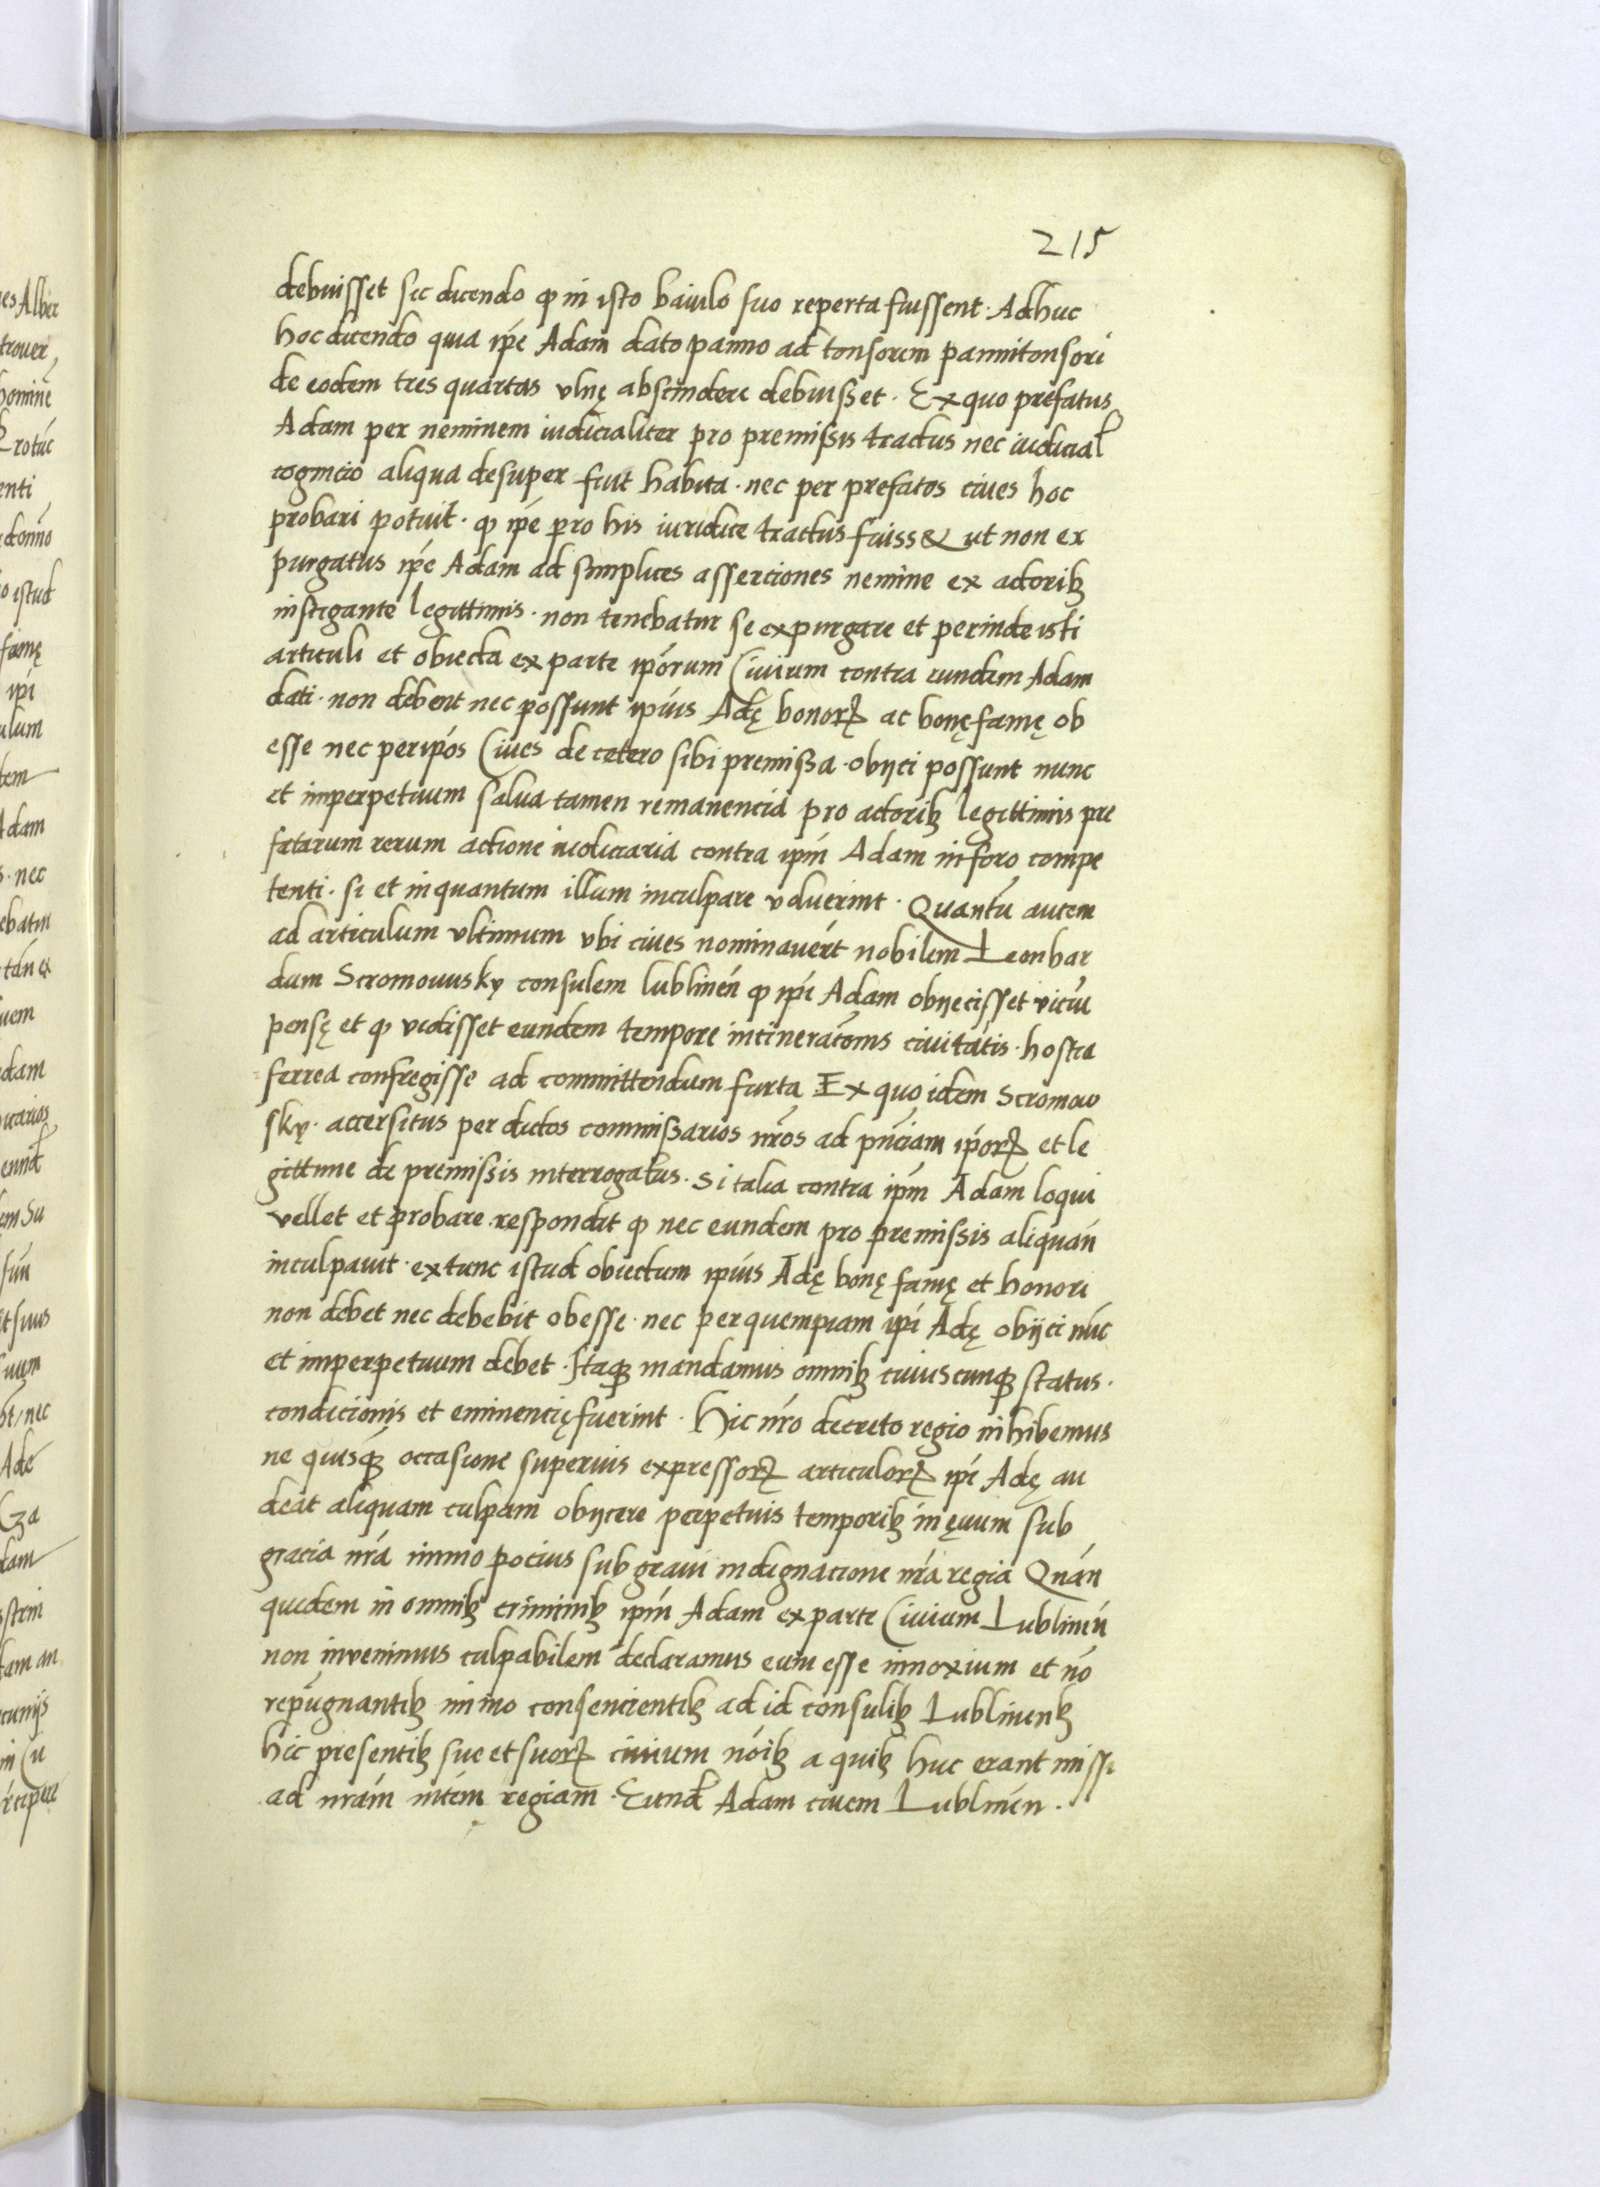 215
debuisset sic dicendo ꝙ in isto baiulo suo reperta fuissent · Adhuc
hoc dicendo quia ip̃e Adam dato panno ad tonsorem pannitonsori
de eodem tres quartas vlnę abscindere debuisset · Ex quo prefatus
Adam per neminem iudicialiter pro premissis tractus nec iudicial̃
cognicio aliqua desuper fuit habita · nec per prefatos ciues hoc
probari potuit · ꝙ ip̃e pro his iuridice tractus fuiss& ut non ex
purgatus ip̃e Adam ad simplices asserciones nemine ex actoribꝫ
instigante legittimis · non tenebatur se expurgare et perinde isti
articuli et obiecta ex parte ip̃orum Ciuium contra eundem Adam
dati · non debent nec possunt ip̃ius Adę honorꝫ ac bonę famę ob
esse nec per ip̃os Ciues de cetero sibi premissa · obijci possunt nunc
et imperpetuum salua tamen remanencia pro actoribꝫ legittimis pre
fatarum rerum actione iudiciaria contra ip̃m Adam in foro compe
tenti · si et inquantum illum inculpare voluerint · Quantũ autem
ad articulum vltimum vbi ciues nominauer̃t nobilem Leonhar
dum Scromowsky consulem lublineñ ꝙ ip̃i Adam obijecisset vicıu
pensę et ꝙ vidisset eundem tempore incineratõnis ciuitatis · hostia
ferrea confregisse ad committendum furta Ex quo idem Scromow
sky · accersitus per dictos commissarios nr̃os ad pñciam ip̃orꝫ et le
gittime de premissis interrogatus · Si talia contra ip̃m Adam loqui
vellet et probare respondit ꝙ nec eundem pro premissis aliquañ
inculpauit · extunc istud obiectum ip̃ius Adę bonę famę et honori
non debet nec debebit obesse · nec per quempiam ip̃i Adę obijci nũc
et imperpetuum debet · Itaqꝫ mandamus omnibꝫ cuiuscunqꝫ status ·
condicionis et eminencię fuerint · Hic nr̃o decreto regio inhibemus
ne quisqꝫ̃ occasione superius expressorꝫ articulorꝫ ip̃i Adę au
deat aliquam culpam obijcere perpetuis temporibꝫ in ęuum sub
gracia nr̃a immo pocius sub graui indignacione nr̃a regia Quañ
quidem in omnibꝫ criminibꝫ ip̃m Adam ex parte Ciuium Lublineñ
non inuenimus culpabilem declaramus eum esse innoxium et nõ
repugnantibꝫ immo consencientibꝫ ad id consulibꝫ Lublinenbꝫ
hic presentibꝫ sue et suorꝫ ciuium nõibꝫ a quibꝫ huc erant missi
ad nr̃am mtẽm regiam · Eund̃ Adam ciuem Lublineñ ·